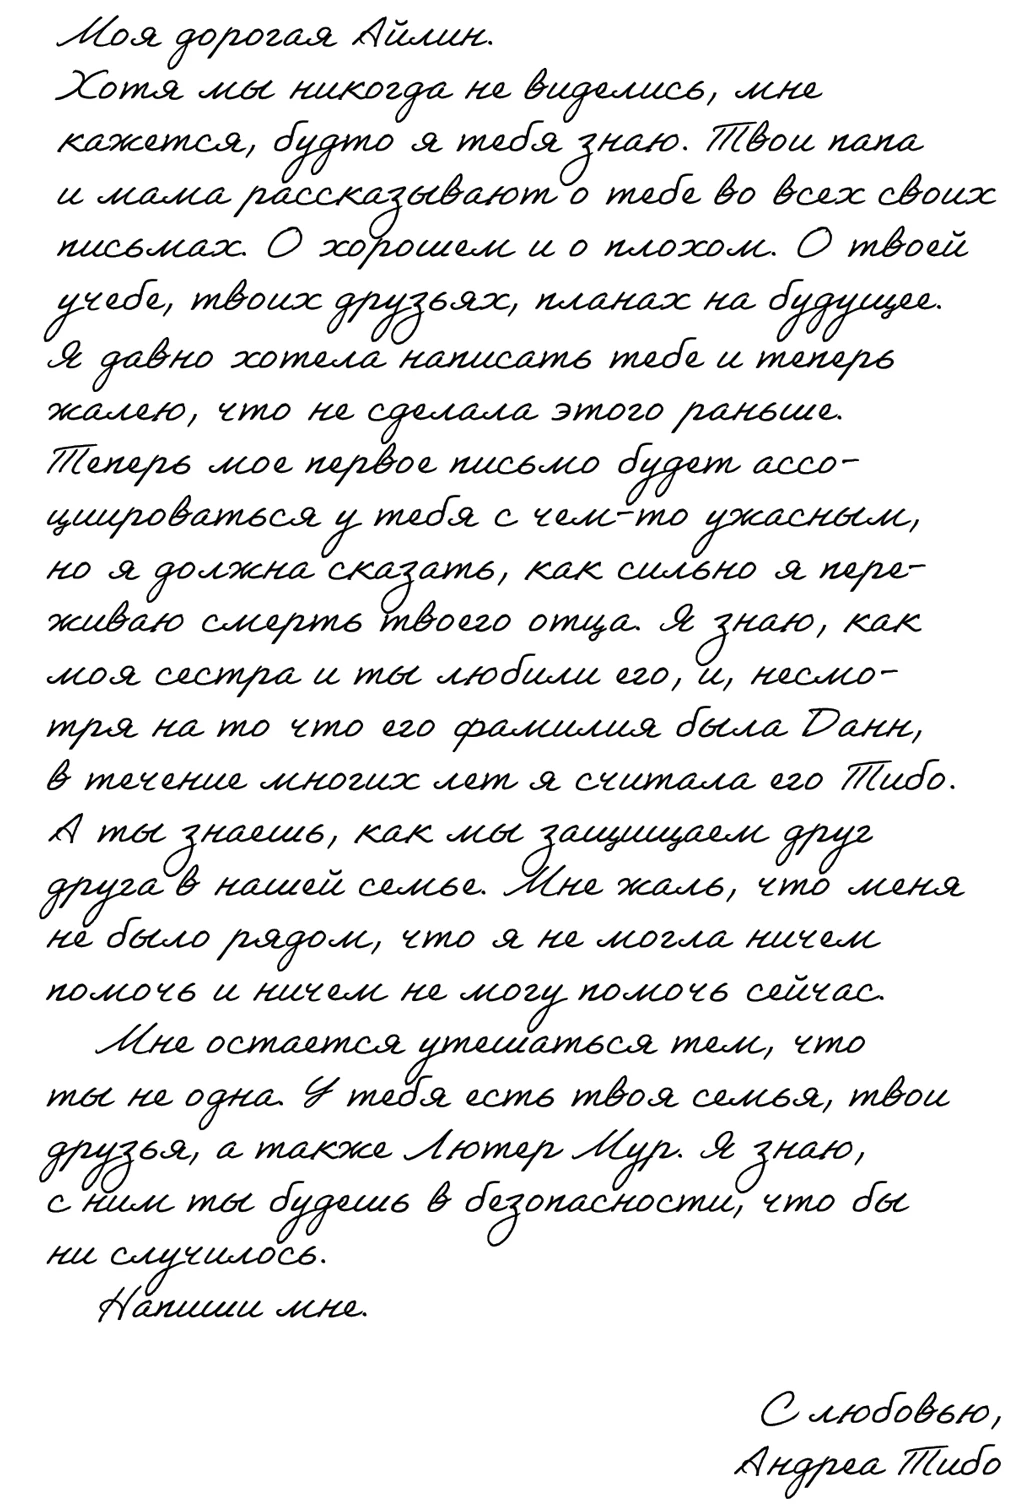 Моя дорогая Айлин.
Хотя мы никогда не виделись, мне
кажется, будто я тебя знаю. Твои папа
и мама рассказывают о тебе во всех своих
письмах. О хорошем и о плохом. О твоей
учебе, твоих друзьях, планах на будущее.
Я давно хотела написать тебе и теперь
жалею, что не сделала этого раньше.
Теперь мое первое письмо будет ассо-
циироваться у тебя с чем-то ужасным,
но я должна сказать, как сильно я пере-
живаю смерть твоего отца. Я знаю, как
моя сестра и ты любили его, и, несмо-
тря на то что его фамилия была Данн,
в течение многих лет я считала его Тибо.
А ты знаешь, как мы защищаем друг
друга в нашей семье. Мне жаль, что меня
не было рядом, что я не могла ничем
помочь и ничем не могу помочь сейчас.
Мне остается утешаться тем, что
ты не одна. У тебя есть твоя семья, твои
друзья, а также Лютер Мур. Я знаю,
с ним ты будешь в безопасности, что бы
ни случилось.
Напиши мне.
С любовью,
Андреа Тибо